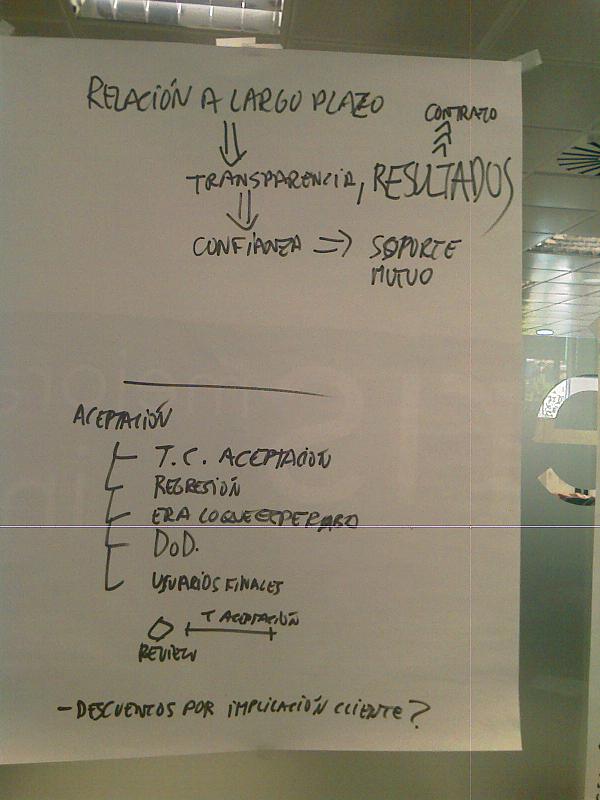 RELACIÓN A LARGO PLAZO
CONTRATO
TRANSPARENCIA, RESULTADOS
CONFIANZA => SOPORTE
MUTUO
ACEPTACIÓN
T.C. ACEPTACION
REGRESIÓN
ERA LO QUE ESPERABA
DoD.
USUARIOS FINALES
T ACEPTACIÓN
REVIEW
- DESCUENTOS POR IMPLICACIÓN CLIENTE?